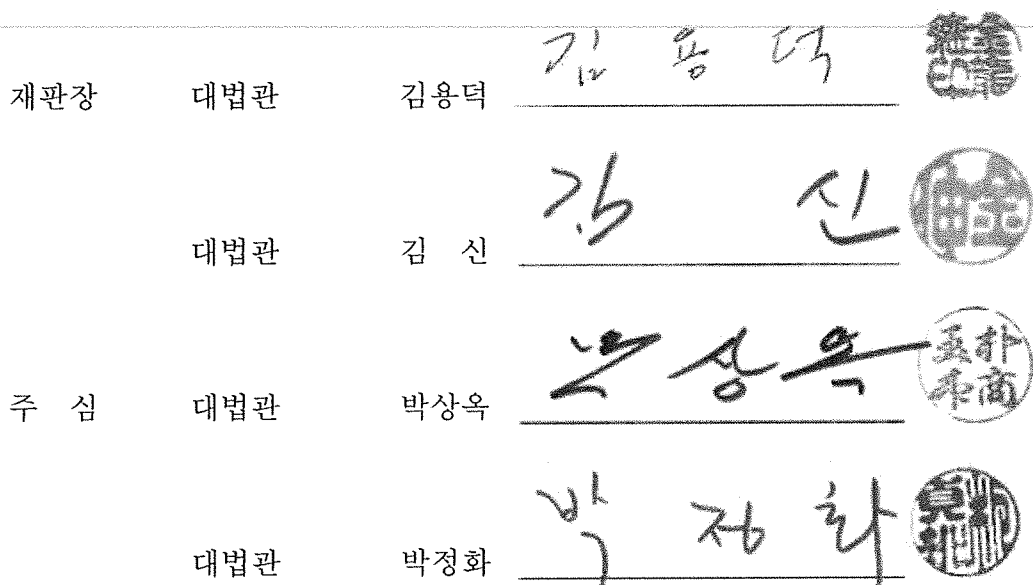 재판장 대법관 김용덕 김 용 덕
대법관 김 신 김 신
주 심 대법관 박상옥 박상옥
대법관 박정화 박 정 화